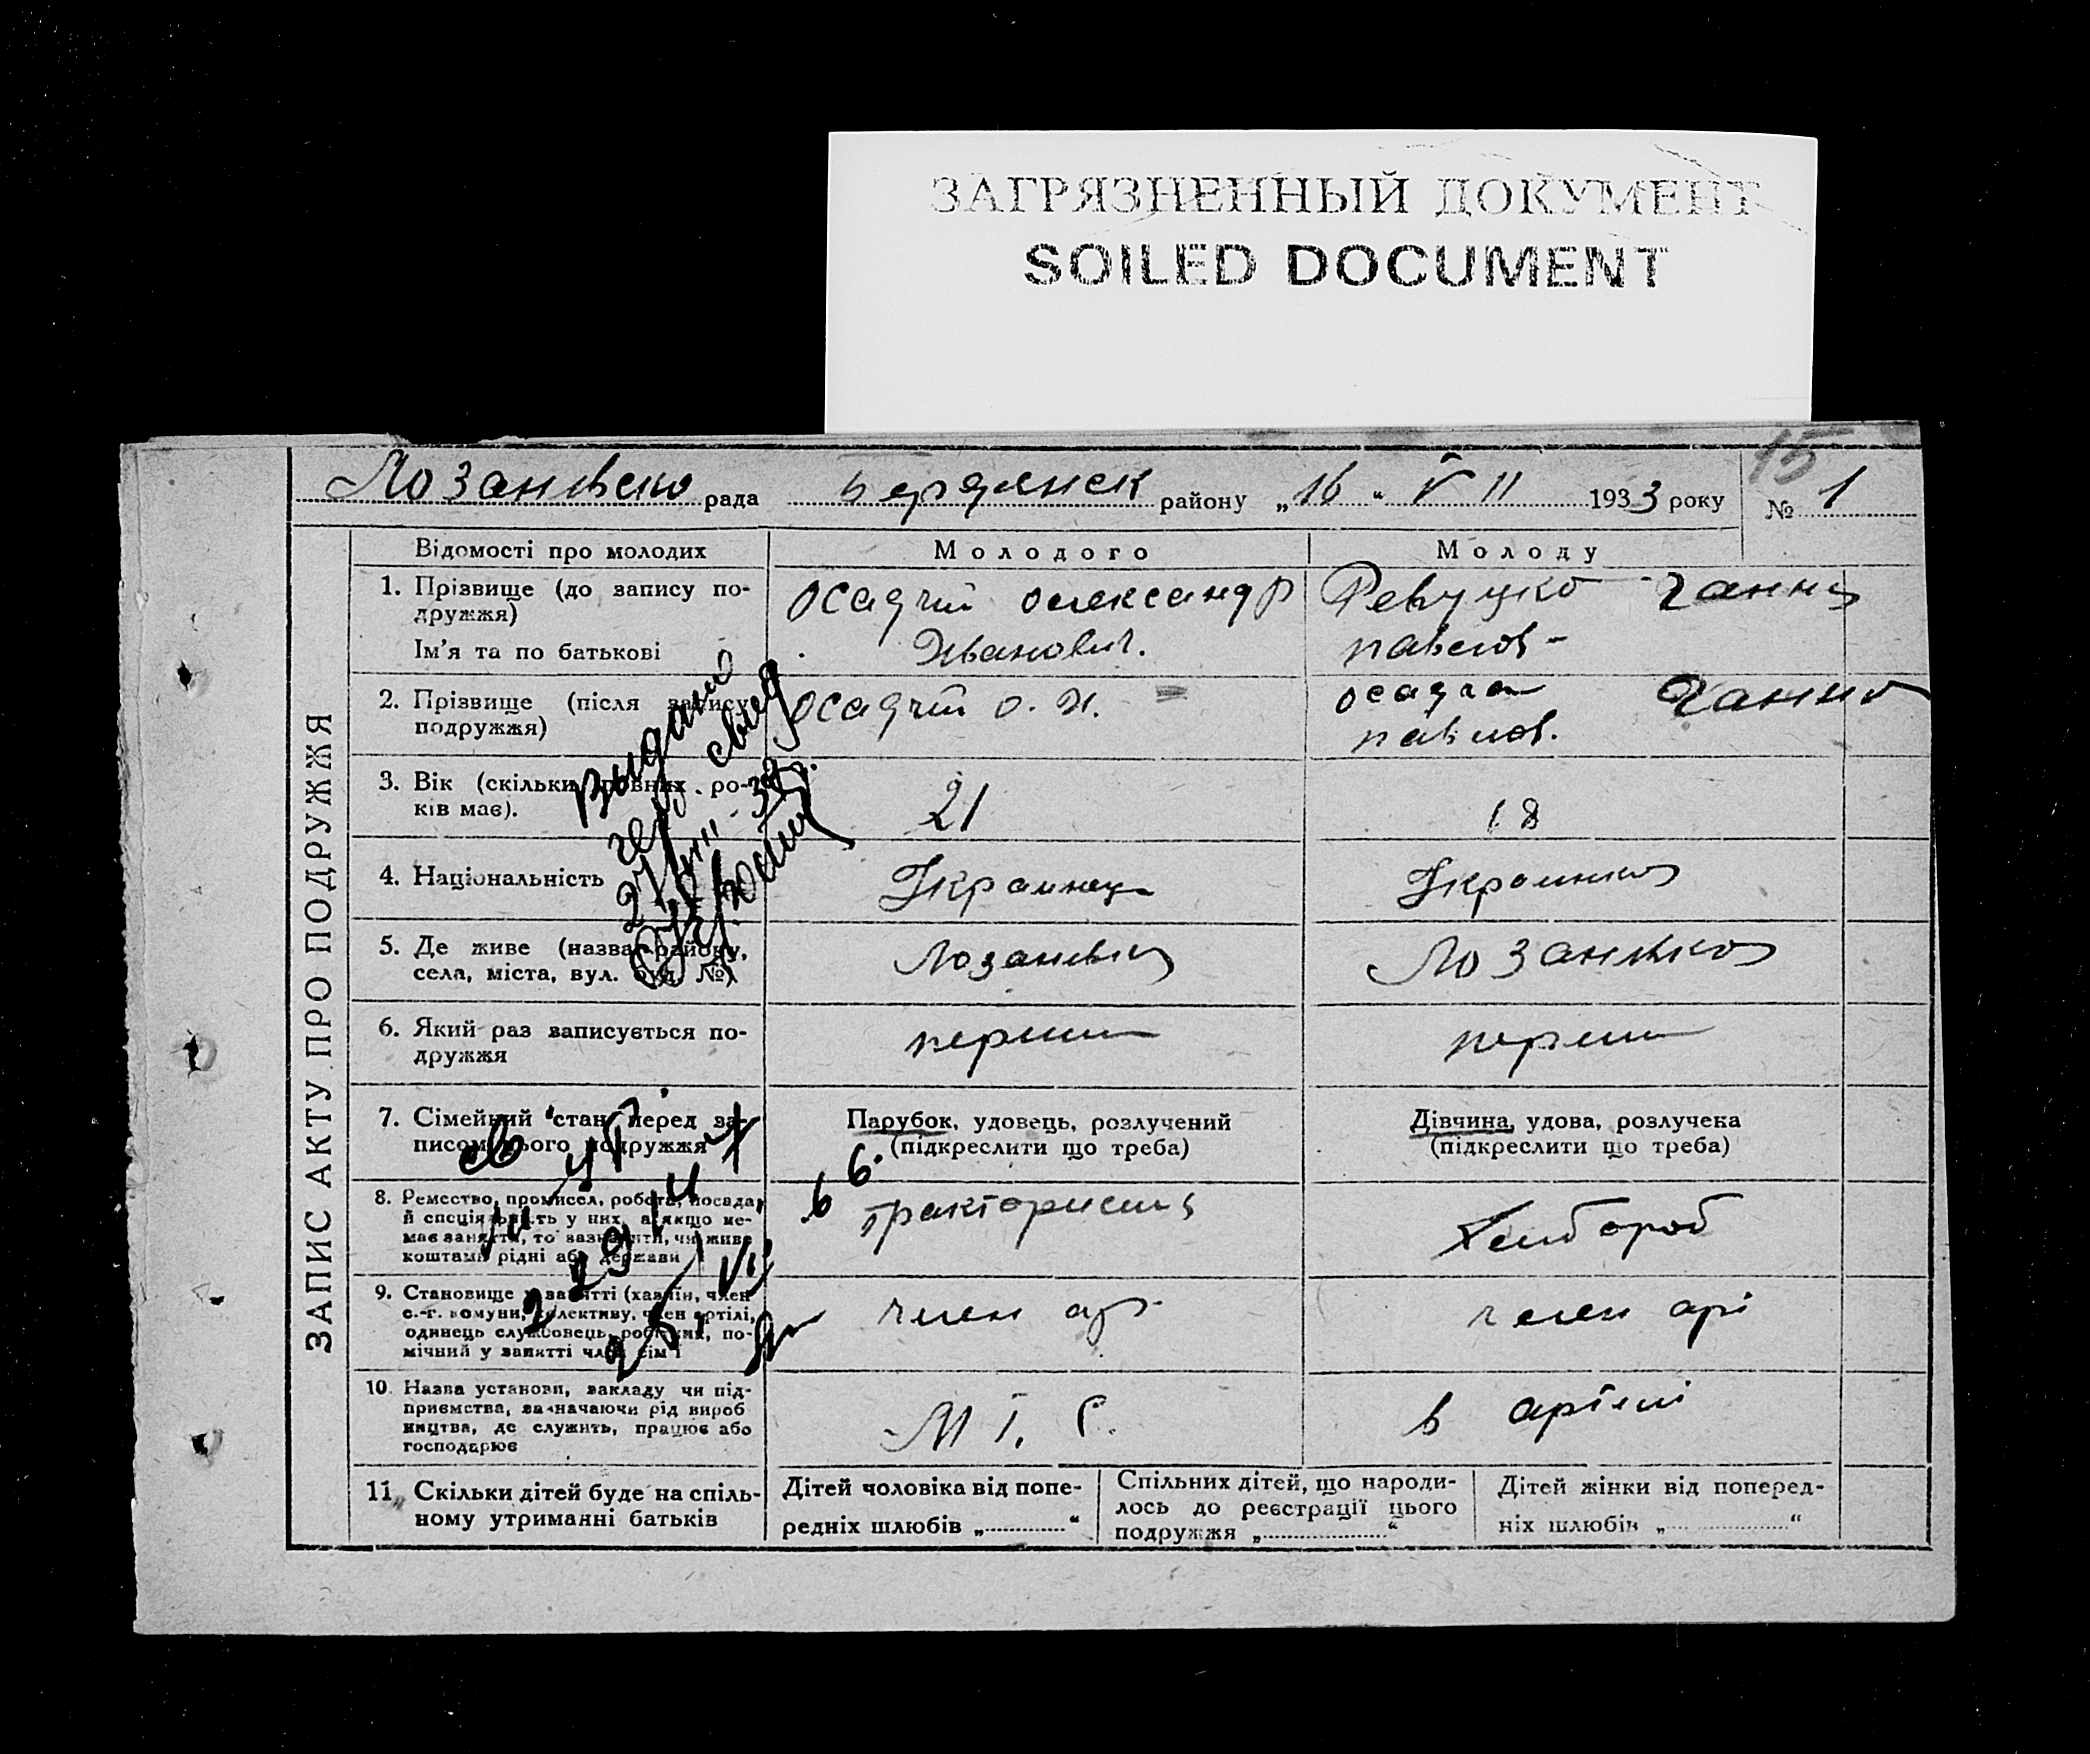 ЗАГРЯЗНЕННЫЙ ДОКУМЕНТ
SOILED DOCUMENT
15
рада Бердянск району „16“ VII 1933 року № 1
ЗАПИС АКТУ ПРО ПОДРУЖЖЯ
Відомості про молодих Молодого Молоду
1. Прізвище (до запису по-
дружжя)
Ім'я та по батькові
Осадчій Олександр
Иванович.
Ганна
павлов-
2. Прізвище (після запису
подружжя)
Осадчій О. И.
Осадча Ганна
павлов.
3. Вік (скільки повних ро-
ків має).
21
18
4. Національність
Украинец
Украинка
5. Де живе (назва району,
села, міста, вул. буд. №)
6. Який раз записується по-
дружжя
перши
перши
7. Сімейний стан перед за-
писом цього подружжя
Парубок, удовець, розлучений
(підкреслити що треба)
Дівчина, удова, розлучека
(підкреслити що треба)
8. Ремество, промисел, робота, посада,
й спеціяльність у них, а якщо не-
має заняття, то зазначити, чи живе
коштами рідні або держави
тракторист
9. Становище в занятті (хазяїн, член
с.-г. комуни, колективу, член артілі,
одинець службовець, робітник, по-
мічний у занятті член сім'ї
член ар
член арт
10. Назва установи, закладу чи під-
приємства, зазначаючи рід вироб
ництва, де служить, працює або
господарює
М Т. С.
в артелі
11. Скільки дітей буде на спіль-
ному утриманні батьків
Дітей чоловіка від попе-
редніх шлюбів „ “
Спільних дітей, що народи-
лось до реєстрації цього
подружжя „ “
Дітей жінки від поперед-
ніх шлюбів „ “